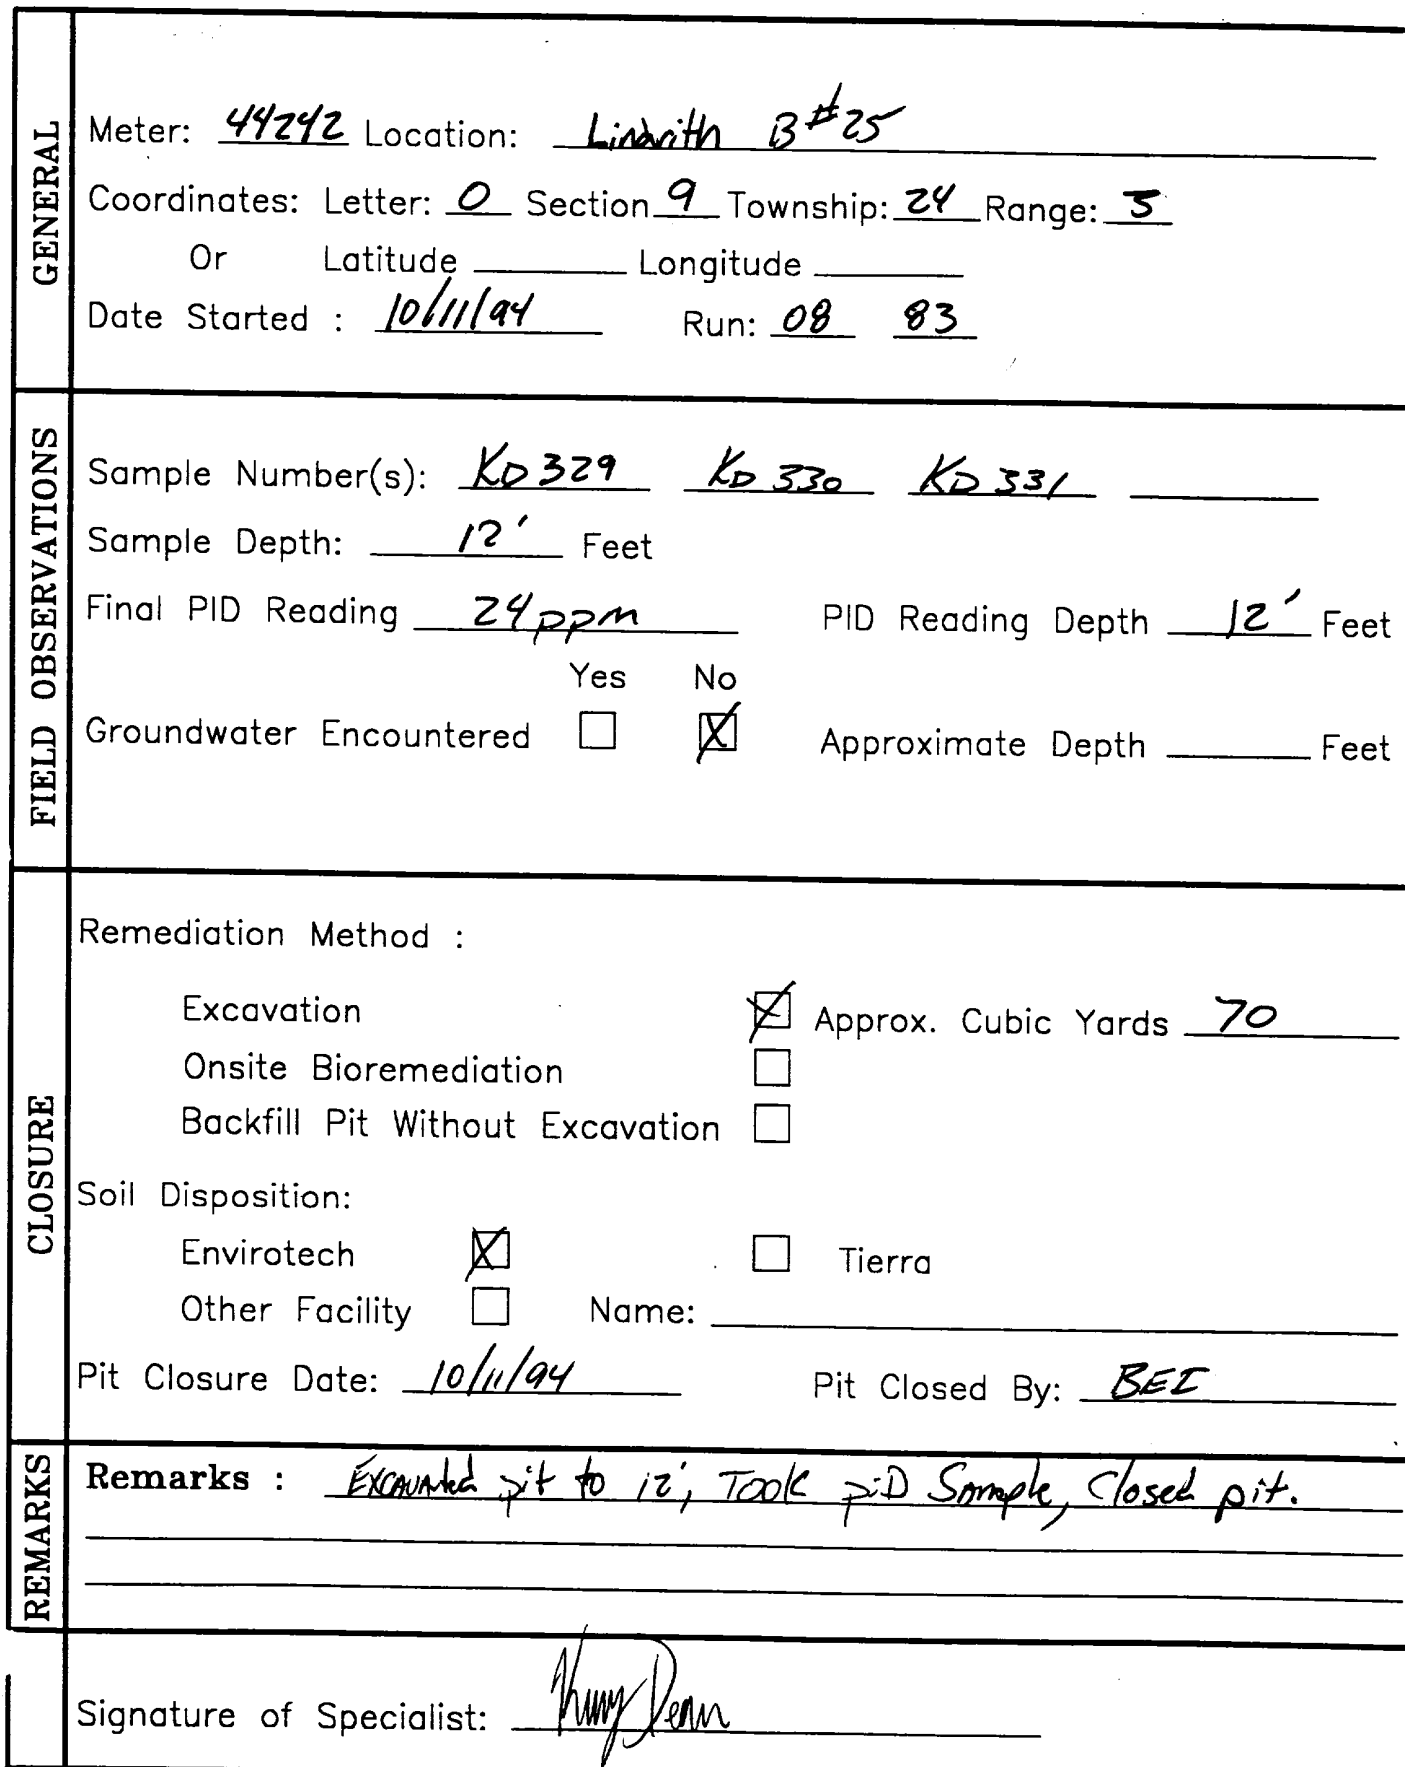 GENERAL
Meter: 44242 Location: Lindrith B #25
Coordinates: Letter: O Section 9 Township: 24 Range: 3
Or Latitude Longitude
Date Started : 10/11/94 Run: 08 83
FIELD OBSERVATIONS
Sample Number(s): KD 329 KD 330 KD 331
Sample Depth: 12' Feet
Final PID Reading 24 ppm PID Reading Depth 12' Feet
Yes No
Groundwater Encountered Approximate Depth Feet
CLOSURE
Remediation Method :
Excavation Approx. Cubic Yards 70
Onsite Bioremediation
Backfill Pit Without Excavation
Soil Disposition:
Envirotech Tierra
Other Facility Name:
Pit Closure Date: 10/11/94 Pit Closed By: BEI
REMARKS
Remarks : Excavated pit to 12', Took PiD Sample, Closed pit.
Signature of Specialist: Dean